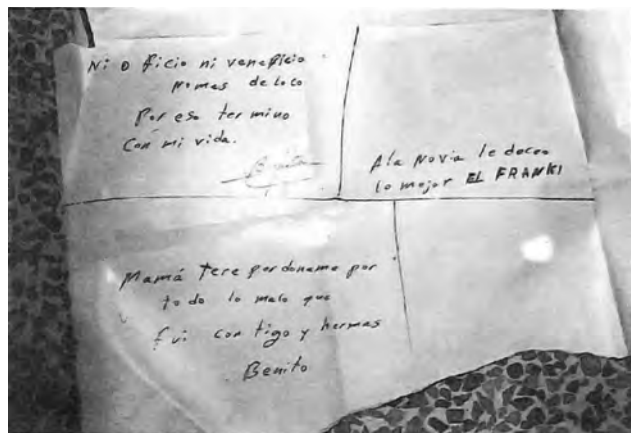 Ni o ficio ni veneficio
nomas de loco
Por eso ter mino
Con mi vida.
Benito
A la novia le deceo
lo mejor EL FRANKI
Mamá Tere perdoname por
to do lo malo que
fui con tigo y hermas
Benito